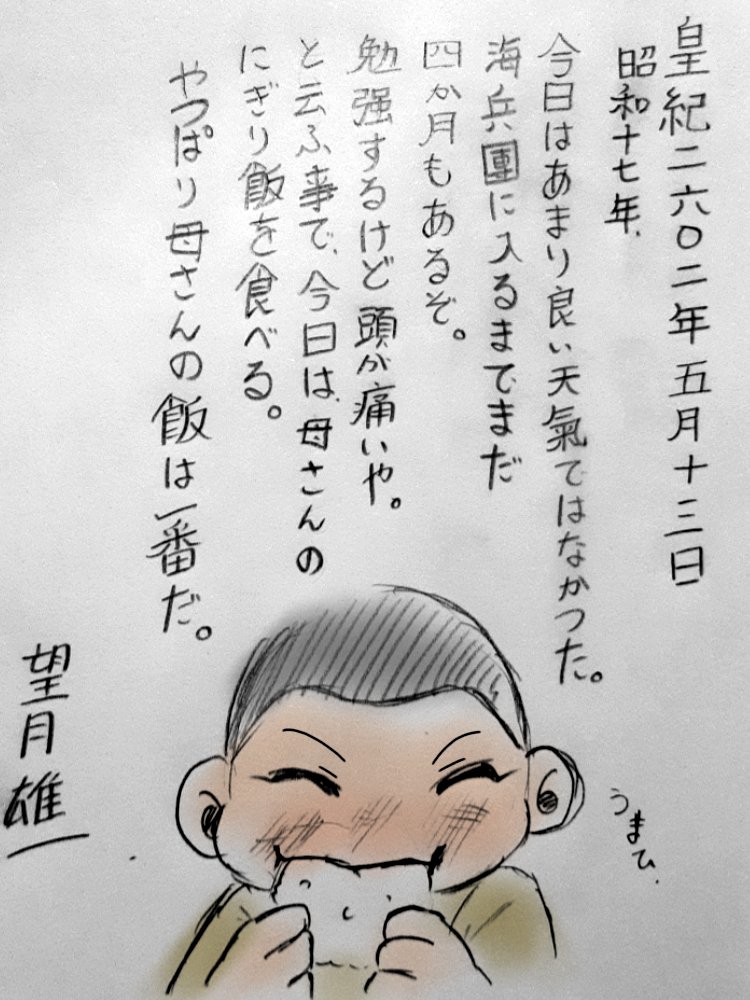 皇紀二六〇二年五月十三日
昭和十七年、
今日はあまり良い天氣ではなかつた。
海兵團に入るまでまだ
四か月もあるぞ。
勉強するけど頭が痛いや。
と云ふ事で、今日は、母さんの
にぎり飯を食べる。
やつぱり母さんの飯は一番だ。
望月雄一
うまひ.